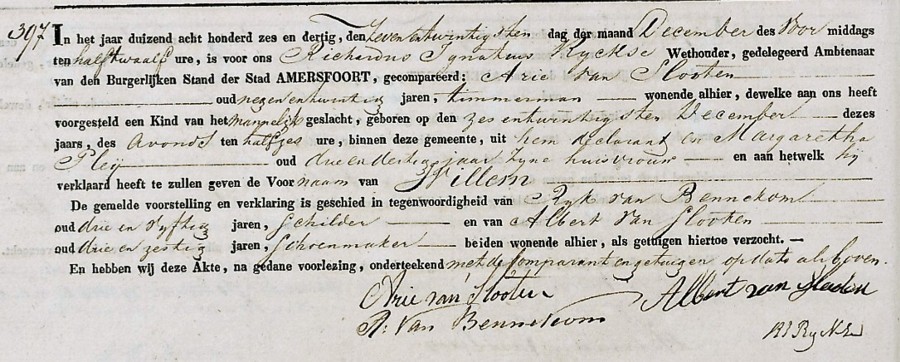 397
In het jaar duizend acht honderd zes en dertig, den Zevenentwintigsten dag der maand December des Voor middags
ten half twaalf ure, is voor ons Richardus Ignatius Ryckse Wethouder, gedelegeerd Ambtenaar
van den Burgerlijken Stand der Stad AMERSFOORT, gecompareerd; Arie van Slooten
oud negen en twintig jaren, timmerman wonende alhier, dewelke aan ons heeft
voorgesteld een Kind van het mannelijk geslacht, geboren op den zes en twintigsten December dezes
jaars, des Avonds ten half zes ure, binnen deze gemeente, uit hem declarant en Margaretha
Pleij oud drie en dertig jaar zyne huisvrouw en aan hetwelk hij
verklaard heeft te zullen geven de Voor naam van Willem
De gemelde voorstelling en verklaring is geschied in tegenwoordigheid van Ryk van Bennekom
oud drie en vyftig jaren, Schilder en van Albert van Slooten
oud drie en zestig jaren, Schoenmaker beiden wonende alhier, als getuigen hiertoe verzocht. —
En hebben wij deze Akte, na gedane voorlezing, onderteekend met de Comparant en getuigen op dato als boven.
Arie van Slooten Albert van Slooten
R: Van Bennekom